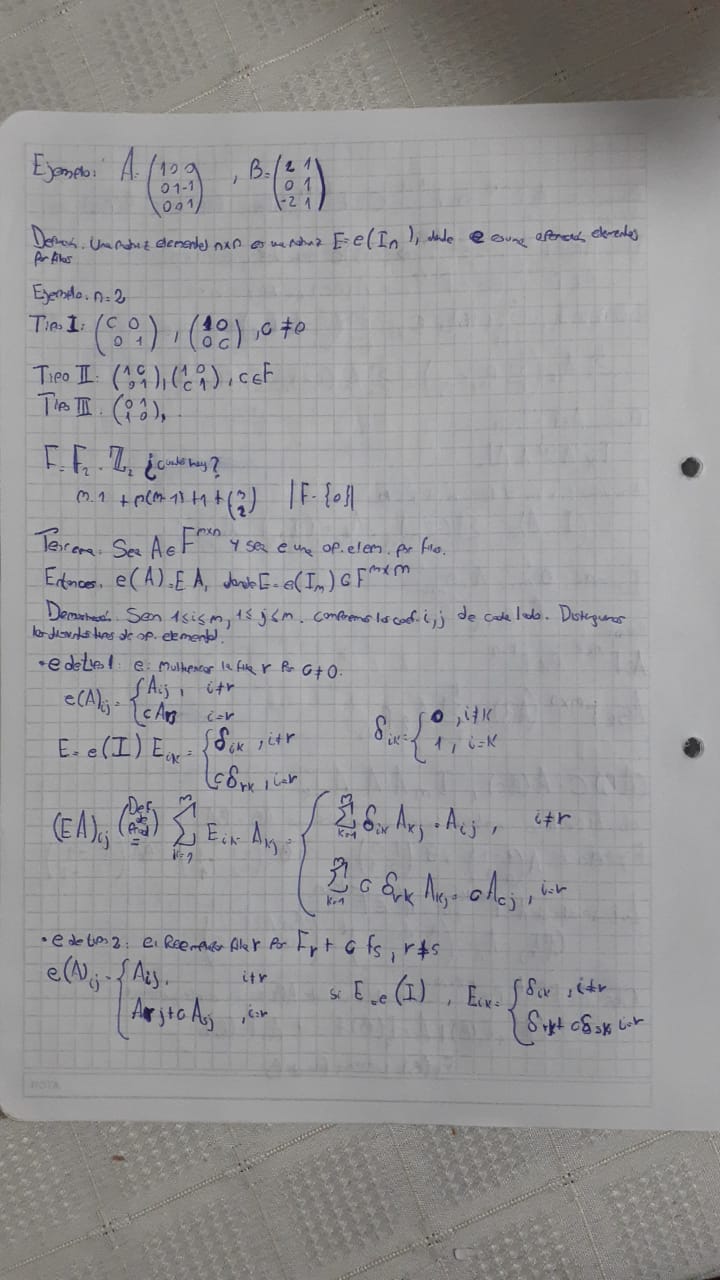 Ejemplo: A= (1 0 0 / 0 1 -1 / 0 0 1) , B= (2 1 / 0 1 / -2 1)
una matriz elemental n×n es una matriz E=e(In), donde e es una operación elemental
por filas
Ejemplo. n=2
Tipo I: (c 0 / 0 1) , (1 0 / 0 c) , c ≠ 0
Tipo II: (1 c / 0 1), (1 0 / c 1), c∈F
Tipo III. (0 1 / 1 0),
F= F₂ = Z₂ ¿cuántas hay?
n.1 + n(n-1)+1 + (n / 2) |F-{0}|
Sea A∈F^{m×n} y sea e una op. elem. por fila.
Entonces, e(A)=EA, donde E=e(Im)∈F^{m×m}
Sean 1≤i≤m, 1≤j≤m. los coef. i,j de cada lado. Distinguimos
de op. elemental.
• e de tipo 1: e: multiplicar la fila r por c≠0.
e(A)ij = { Aij, i≠r
cArj i=r
E= e(I) Eik = { δik , i≠r
cδrk, i=r
δik = { 0 , i≠k
1, i=k
(EA)ij (Def de Prod) = Σ_{k=1}^{m} Eik Akj = { Σ_{k=1}^{m} δik Akj = Aij , i≠r
Σ_{k=1}^{m} c δrk Akj = cAcj , i=r
• e de tipo 2: e: Reemplazar fila r por Fr + c fs, r≠s
e(A)ij = { Aij, i≠r
Arj+c Asj , i=r
si E=e(I) , Eik= { δik , i≠r
δrk+ cδsk i=r
NOTA